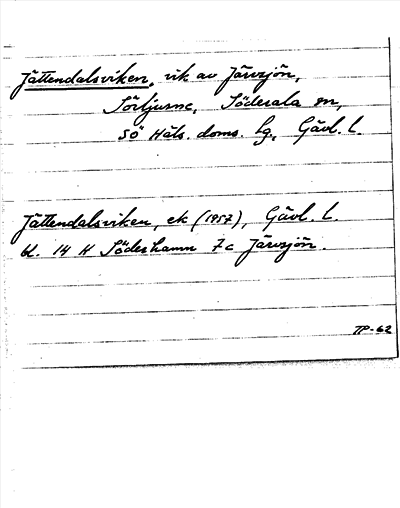 Jättendalsviken, vik av Järvsjön,
Sörljusne, Söderala sn,
SÖ Häls. doms. lg, Gävl. l.
Jättendalsviken, ek (1957), Gävl. l.
bl. 14 H Söderhamn 7c Järvsjön.
TP-62